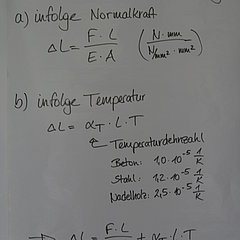 a) infolge Normalkraft
ΔL = F·L / E·A (N·mm / N/mm²·mm²)
b) infolge Temperatur
ΔL = α_T · L · T
Temperaturdehnzahl
Beton: 1,0·10⁻⁵ 1/K
Stahl: 1,2·10⁻⁵ 1/K
Nadelholz: 2,5·10⁻⁵ 1/K
ΔL = F·L + α_T · L · T